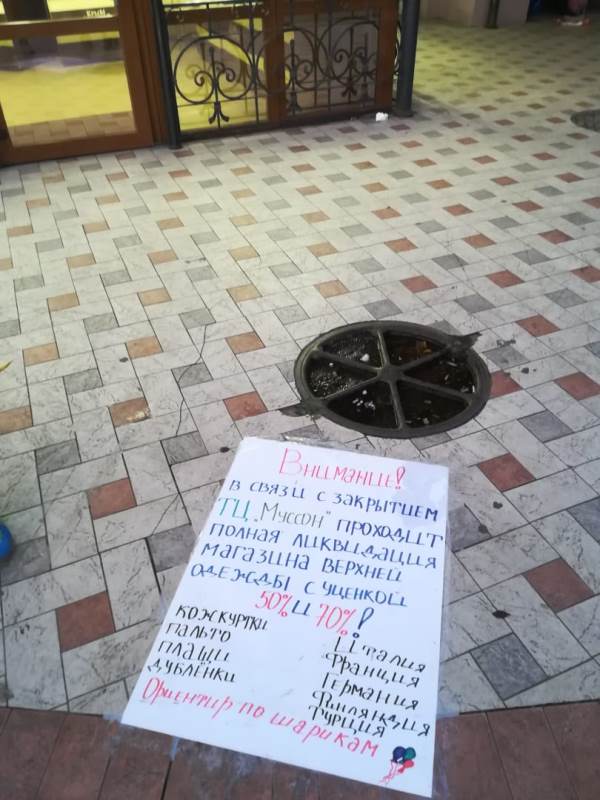 Внимание!
В связи с закрытием
ТЦ „Муссон" проходит
полная ликвидация
магазина верхней
одежды с уценкой
50% и 70%!
кожкуртки
пальто
плащи
дублёнки
Италия
Франция
Германия
Финляндия
Турция
Ориентир по шарикам